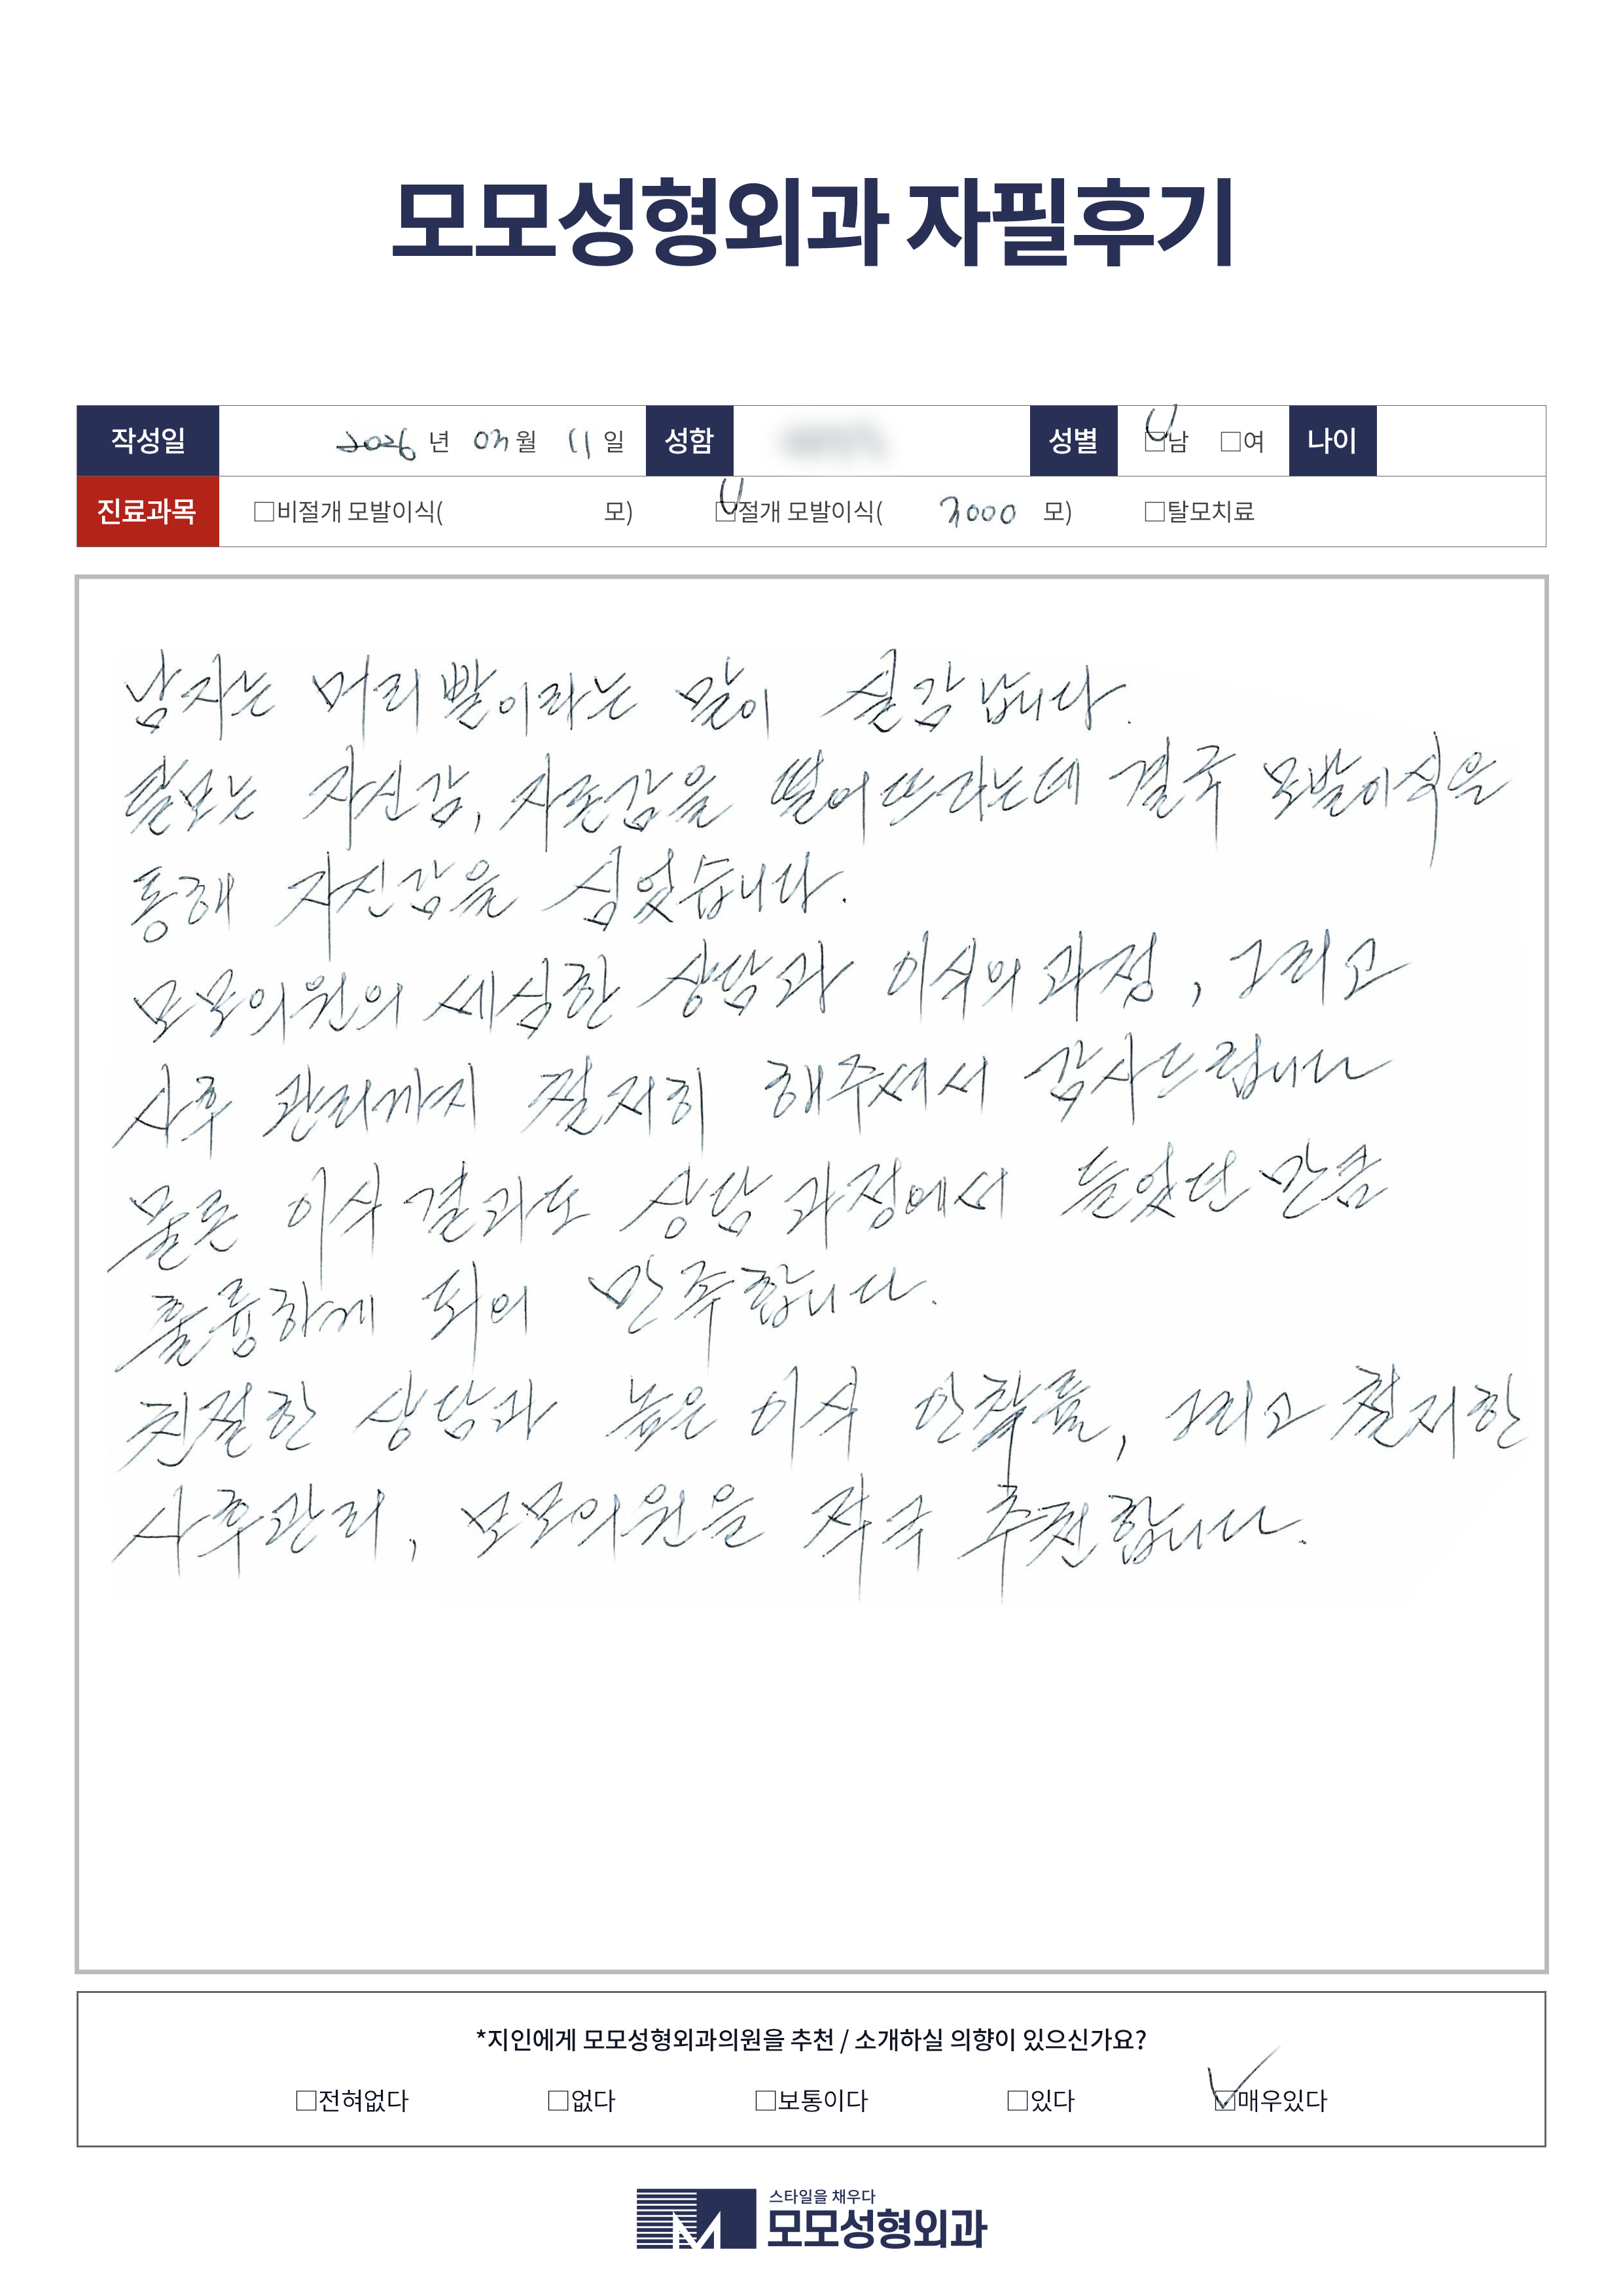 모모성형외과 자필후기
작성일 2026 년 03 월 11 일 성함 성별 □남 □여 나이
진료과목 □비절개 모발이식( 모) □절개 모발이식( 3000 모) □탈모치료
남자는 머리빨이라는 말이 실감 납니다.
탈모는 자신감, 자존감을 떨어뜨리는데 결국 모발이식을
통해 자신감을 심었습니다.
모모의원의 세심한 상담과 이식의 과정, 그리고
사후 관리까지 철저히 해주셔서 감사드립니다
물론 이식 결과도 상담 과정에서 들었던 만큼
훌륭하게 되어 만족합니다.
친절한 상담과 높은 이식 안착률, 그리고 철저한
사후관리, 모모의원을 적극 추천합니다.
*지인에게 모모성형외과의원을 추천 / 소개하실 의향이 있으신가요?
□전혀없다 □없다 □보통이다 □있다 ☑매우있다
스타일을 채우다
모모성형외과